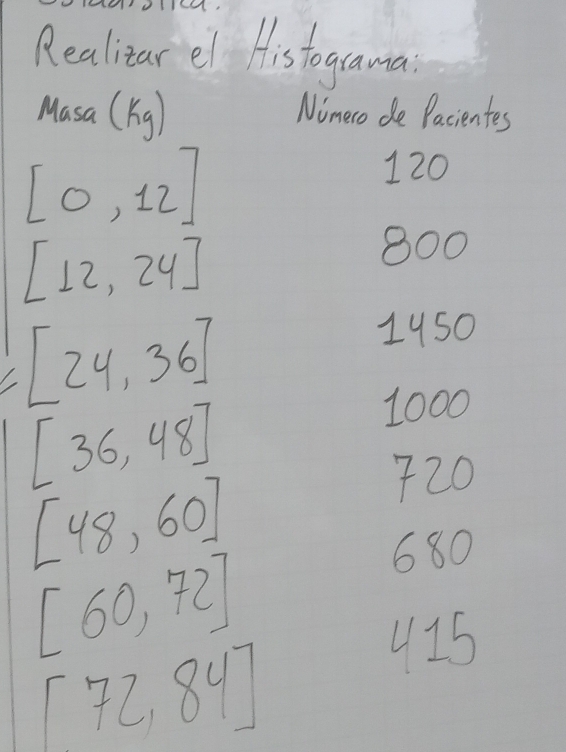 Realizar el Histograma:
Masa (Kg) Número de Pacientes
[0, 12] 120
[12, 24] 800
[24, 36] 1450
[36, 48] 1000
[48, 60] 720
[60, 72] 680
[72, 84] 415